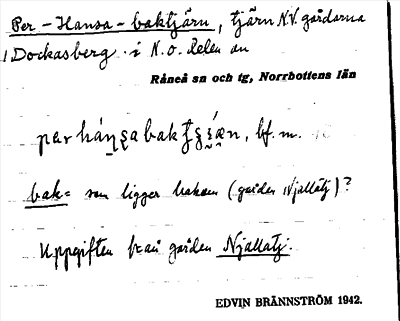 Per-Hansa-baktjärn, tjärn N.V. gårdarna
i Dockasberg i N.o. delen av
Råneå sn och tg, Norrbottens län
bf. m.
bak= som ligger bakom (gården Njallatj)?
Uppgiften från gården Njallatj.
EDVIN BRÄNNSTRÖM 1942.